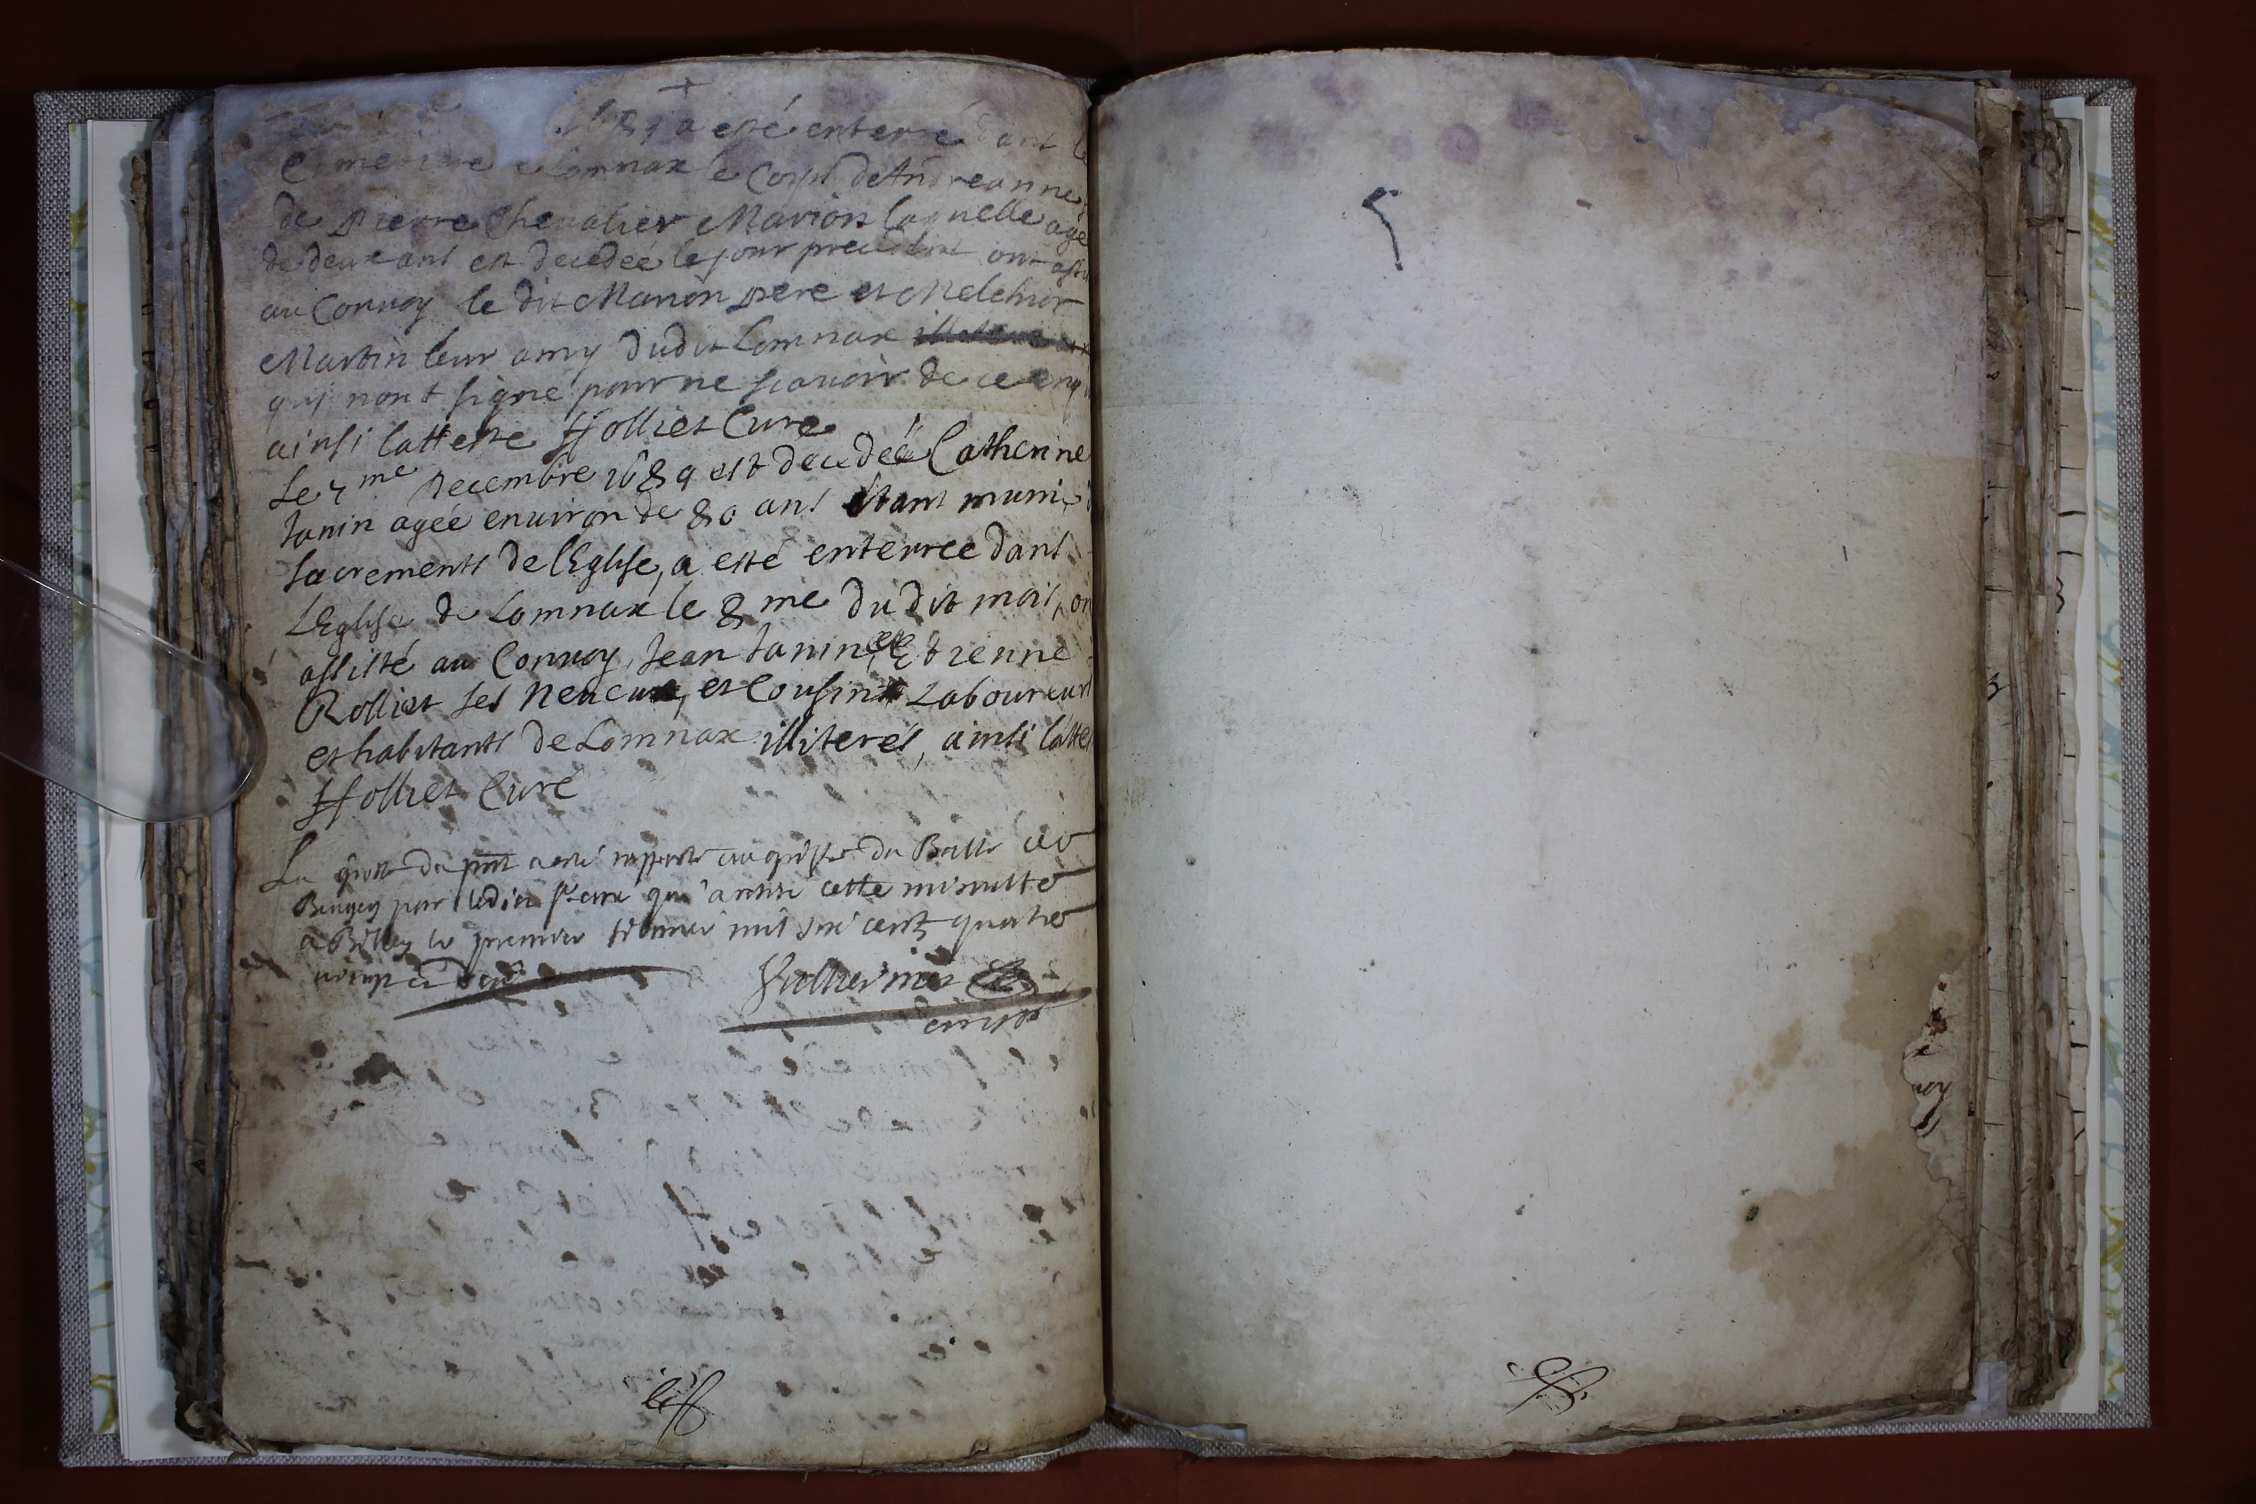 +
1689 a esté enterré dans le
Cimetiere de Lomnax le Corps de Andreanne
de Pierre Chevalier Marion laquelle agé
de deux ans est decedée le jour precedent ont assi
au Convoy le dit Marion pere et Melchior
Martin leur amy dudit Lomnax
qui nont signe pour ne scavoir de ce enq
ainsi latteste Holliet Cure
Le 7me Decembre 1689 est decedée Catherine
Janin agée environ de 80 ans etant munie
sacrements de lEglise, a esté enterree dans
LEglise de Lomnax le 8me du dit mois, on
assisté au Convoy Jean Janin, et Etienne
Rolliet ses Neveux, et Cousin Laboureurs
et habitants de Lomnax illiterés, ainsi latte
Holliet Curé
La grosse du pnt a esté rapporté au greffe du Balli
Bugey par ledit Sr cure qui a retiré cette minutte
a Belley le premier mil six centz quatre
vingt